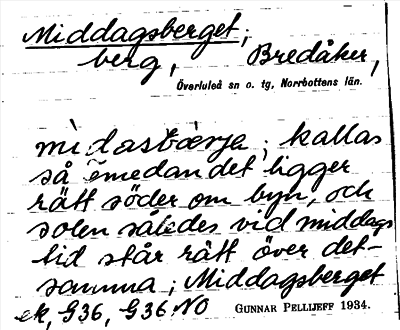 Middagsberget;
berg, Bredåker,
Överluleå sn o. tg, Norrbottens län.
mìdastbærja; kallas
så emedan det ligger
rätt söder om byn, och
solen således vid middags
tid står rätt över det-
samma; Middagsberget
ek, G36, G36:NO
GUNNAR PELLIJEFF 1934.